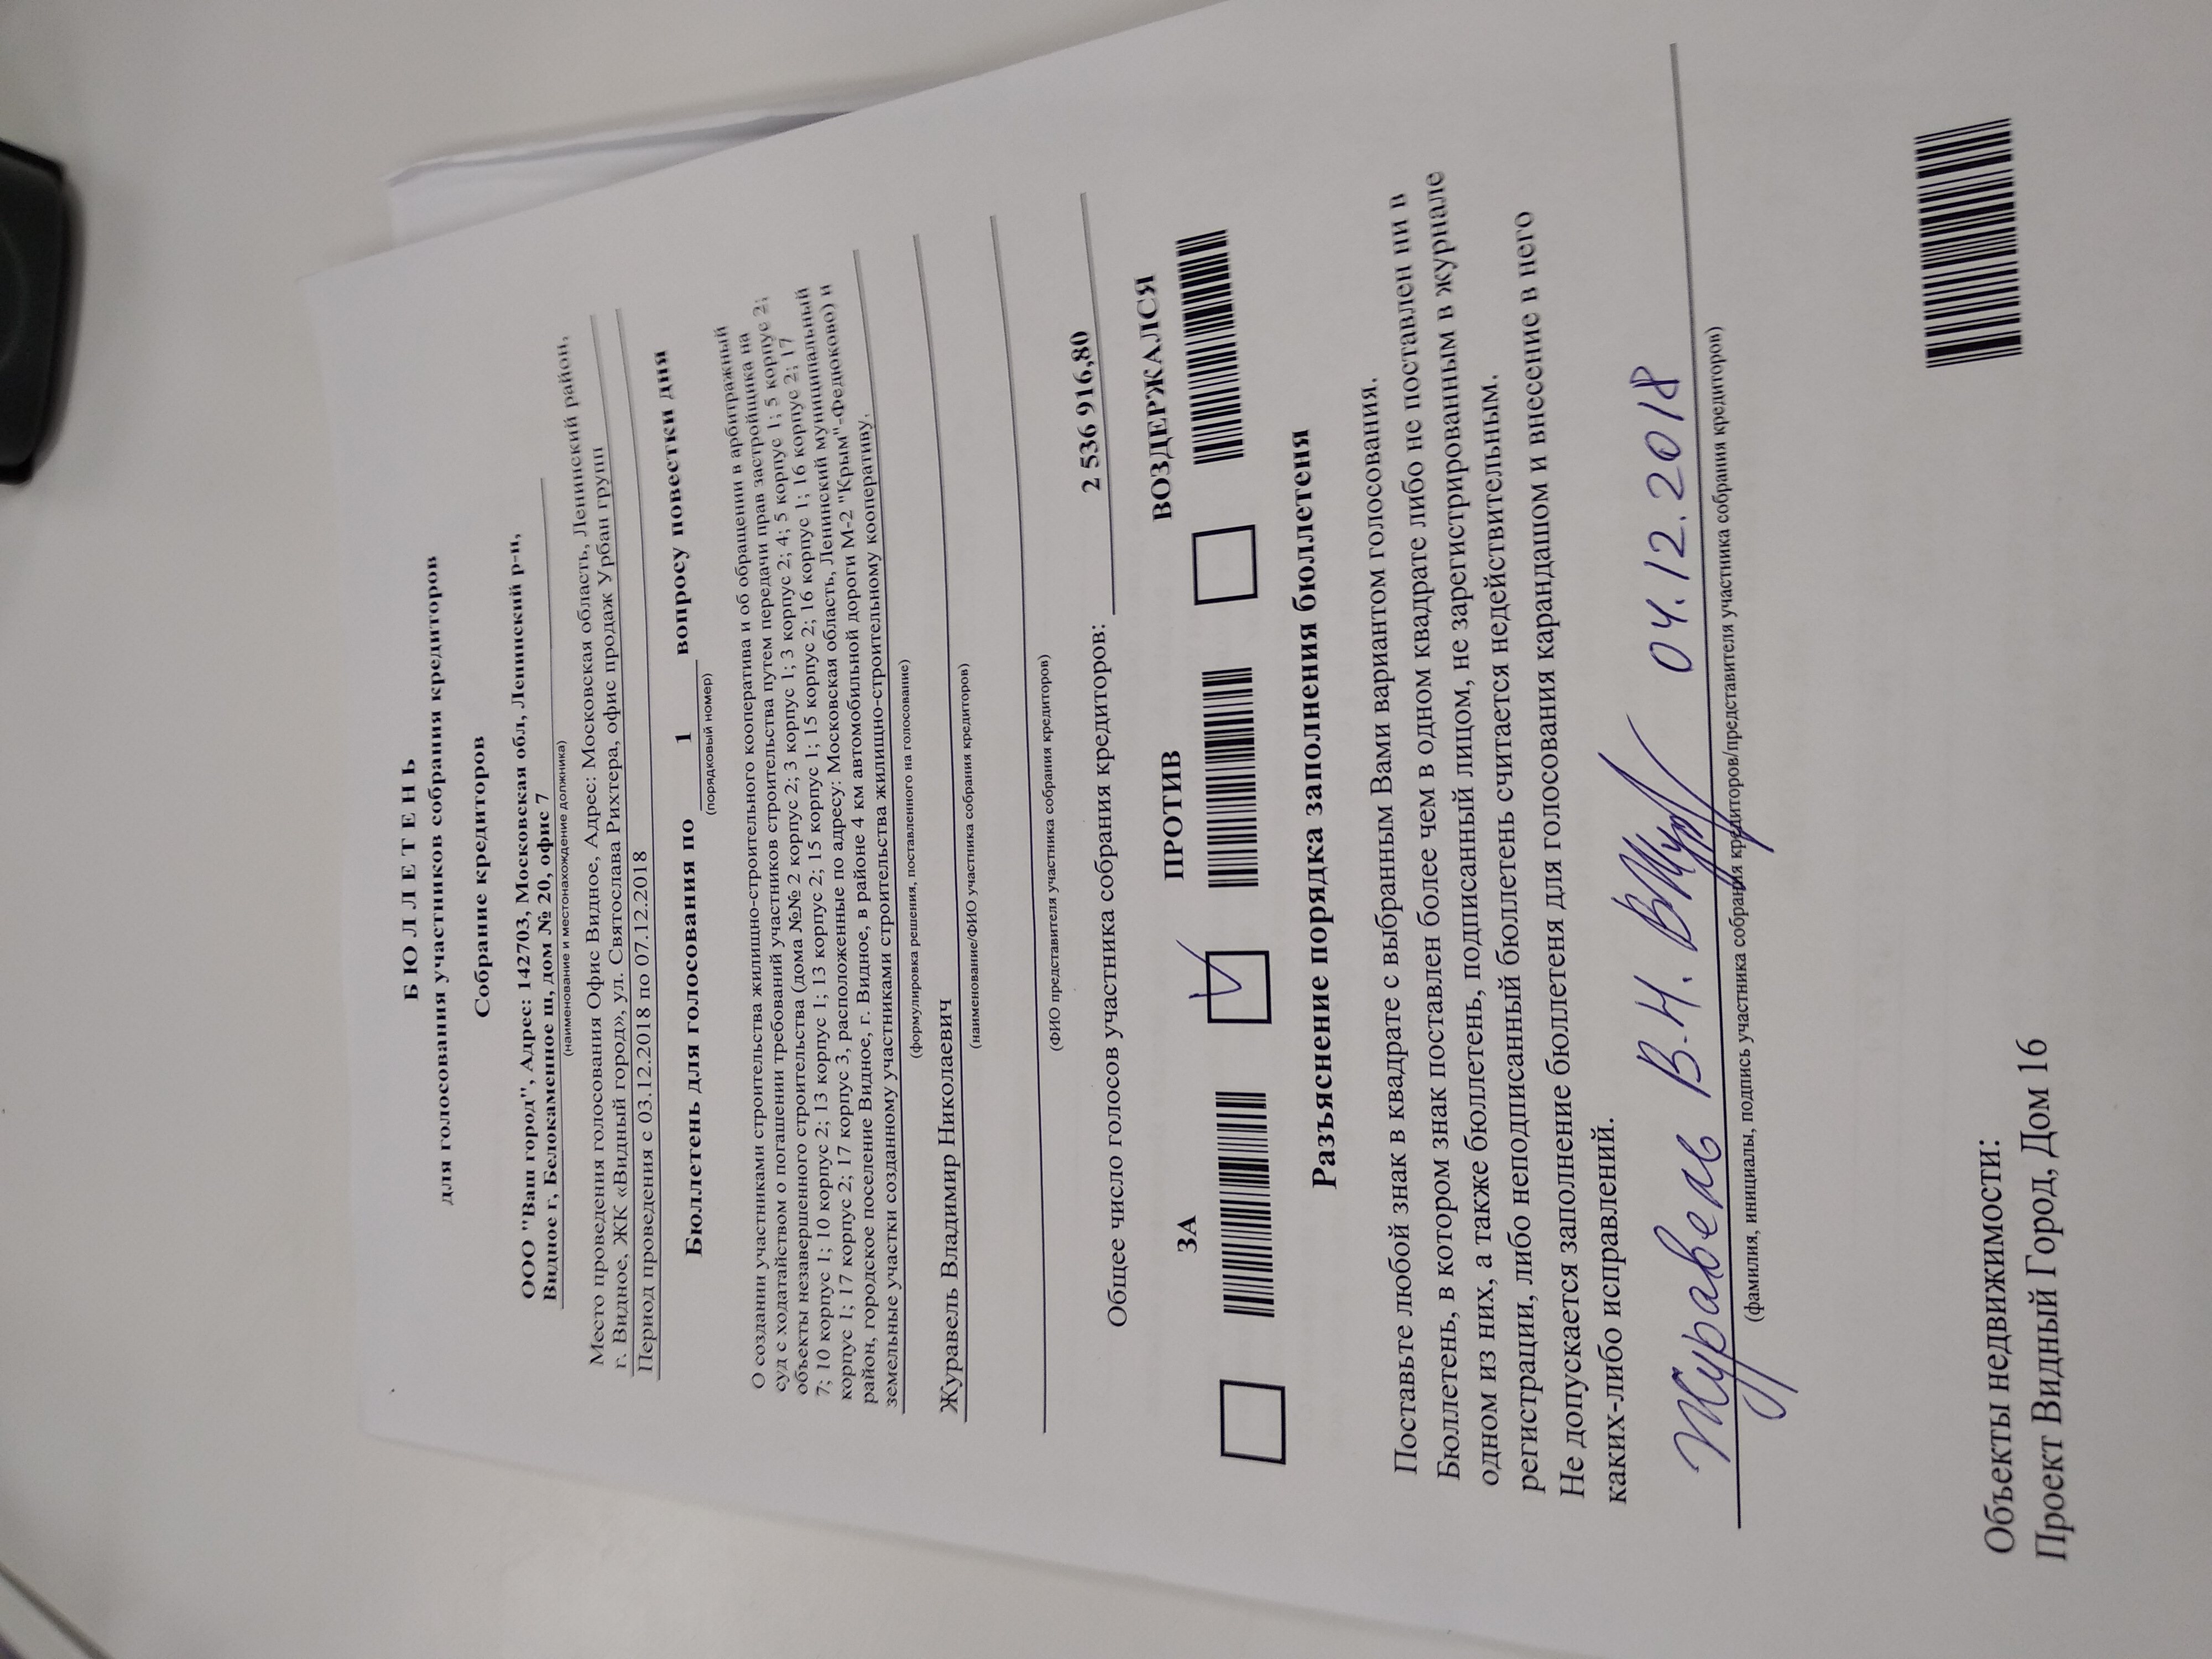 БЮЛЛЕТЕНЬ
для голосования участников собрания кредиторов
Собрание кредиторов
ООО "Ваш город", Адрес: 142703, Московская обл, Ленинский р-н,
Видное г, Белокаменное ш, дом № 20, офис 7
(наименование и местонахождение должника)
Место проведения голосования Офис Видное, Адрес: Московская область, Ленинский район,
г. Видное, ЖК «Видный город», ул. Святослава Рихтера, офис продаж Урбан групп
Период проведения с 03.12.2018 по 07.12.2018
Бюллетень для голосования по 1 вопросу повестки дня
(порядковый номер)
О создании участниками строительства жилищно-строительного кооператива и об обращении в арбитражный
суд с ходатайством о погашении требований участников строительства путем передачи прав застройщика на
объекты незавершенного строительства (дома №№ 2 корпус 2; 3 корпус 1; 3 корпус 2; 4; 5 корпус 1; 5 корпус 2;
7; 10 корпус 1; 10 корпус 2; 13 корпус 1; 13 корпус 2; 15 корпус 1; 15 корпус 2; 16 корпус 1; 16 корпус 2; 17
корпус 1; 17 корпус 2; 17 корпус 3, расположенные по адресу: Московская область, Ленинский муниципальный
район, городское поселение Видное, г. Видное, в районе 4 км автомобильной дороги М-2 "Крым"-Федюково) и
земельные участки созданному участниками строительства жилищно-строительному кооперативу.
(формулировка решения, поставленного на голосование)
Журавель Владимир Николаевич
(наименование/ФИО участника собрания кредиторов)
(ФИО представителя участника собрания кредиторов)
Общее число голосов участника собрания кредиторов: 2 536 916,80
ЗА ПРОТИВ ВОЗДЕРЖАЛСЯ
Разъяснение порядка заполнения бюллетеня
Поставьте любой знак в квадрате с выбранным Вами вариантом голосования.
Бюллетень, в котором знак поставлен более чем в одном квадрате либо не поставлен ни в
одном из них, а также бюллетень, подписанный лицом, не зарегистрированным в журнале
регистрации, либо неподписанный бюллетень считается недействительным.
Не допускается заполнение бюллетеня для голосования карандашом и внесение в него
каких-либо исправлений.
Журавель В.Н. 04.12.2018
(фамилия, инициалы, подпись участника собрания кредиторов/представителя участника собрания кредиторов)
Объекты недвижимости:
Проект Видный Город, Дом 16